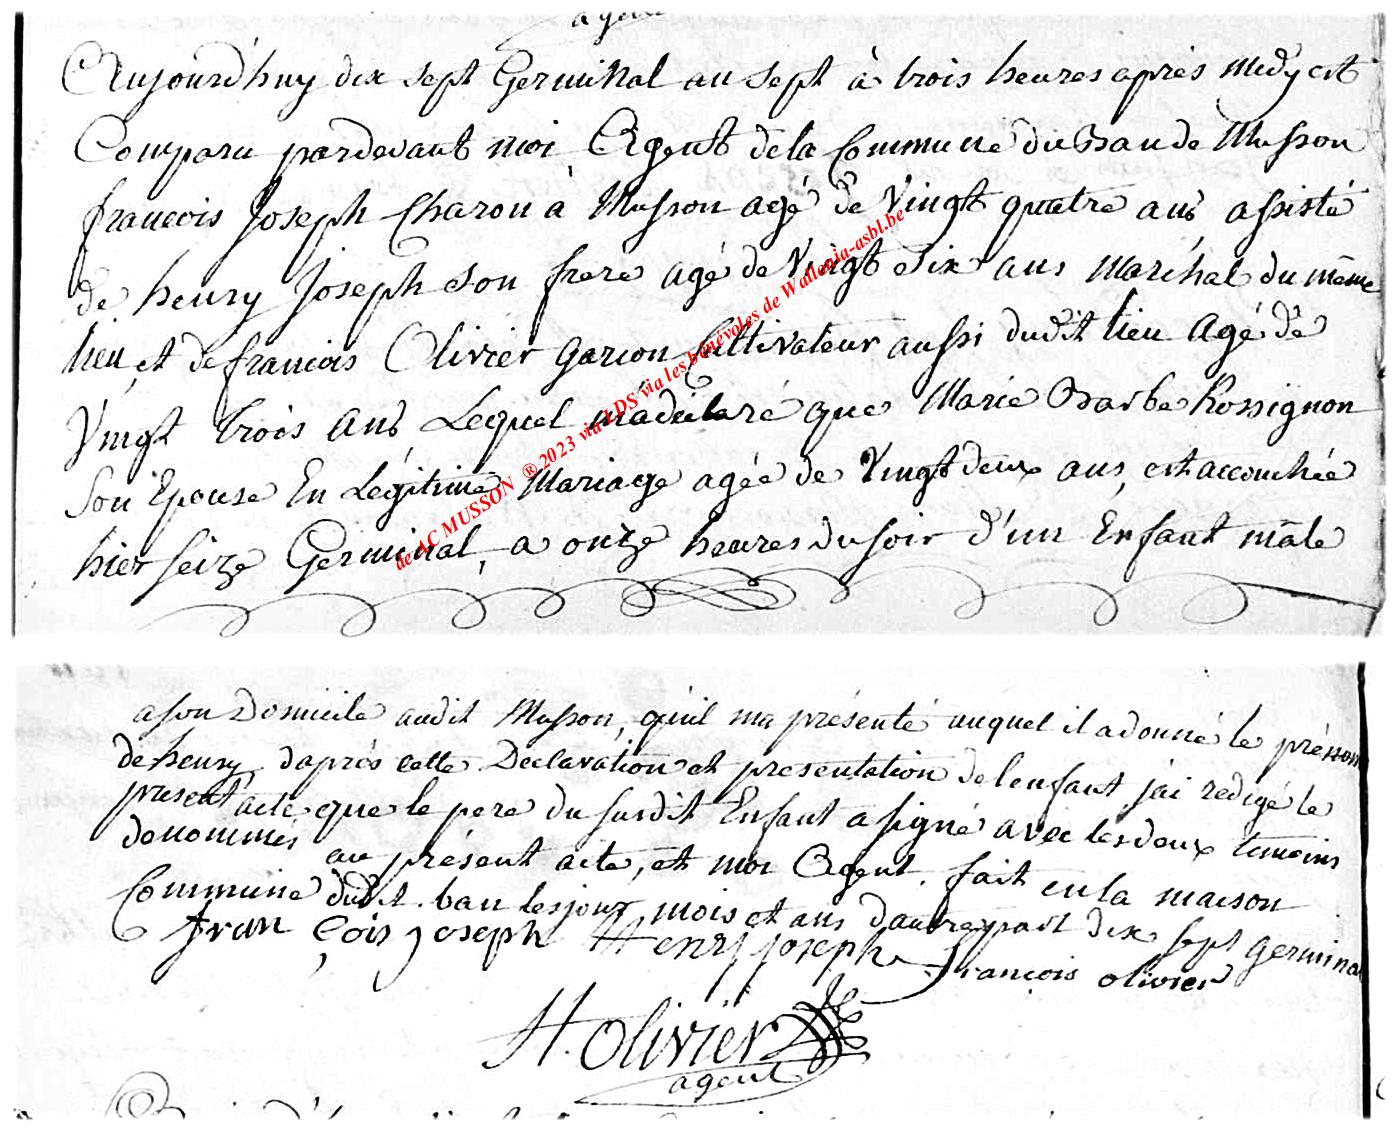 agent
Aujourd'huy dix sept Germinal an sept à trois heures après midy est
Comparu pardevant moi Agent de la Commune du Ban de Musson
francois Joseph Charon à Musson agé de Vingt quatre ans assisté
de henry Joseph son frere agé de Vingt Six ans Maréhal du même
lieu et de francois Olivier garcon Cultivateur aussi dudit lieu Agé de
Vingt trois ans Lequel m'a déclaré que Marie Barbe Rossignon
Son Epouse En Légitime Mariage agée de Vingt deux ans, est accouchée
hier Seize Germinal, a onze heures du soir d'un Enfant mâle
de AC MUSSON ® 2023 via LDS via les bénévoles de Wallonia-asbl.be
a son Domicile audit Musson, qu'il ma présenté auquel il a donné le prénom
de henry, daprés cette Declaration et presentation de l'enfant j'ai redigé le
present acte que le pere du susdit Enfant a signé avec les deux temoins
denommés au présent acte, et moi Agent. fait en la maison
Commune dudit ban les jour, mois et ans d'autre part dix sept germinal
Fran çois joseph Henri joseph francois olivier
H. Olivier
agent